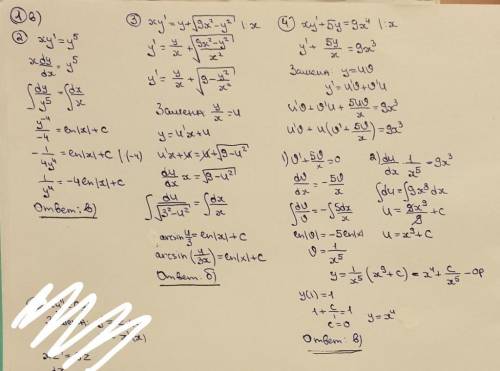 ① в)
② xy' = y⁵
x dy/dx = y⁵
∫ dy/y⁵ = ∫ dx/x
y⁻⁴/-4 = ln|x| + C
- 1/4y⁴ = ln|x| + C | (-4)
1/y⁴ = -4 ln|x| + C
Ответ: в)
③ xy' = y + √9x² - y² | : x
y' = y/x + √(9x² - y²)/x²
y' = y/x + √9 - y²/x²
Замена: y/x = u
y = u'x + u
u'x + u = u + √9 - u²
du/dx x = √9 - u²
∫ du/√3² - u² = ∫ dx/x
arcsin u/3 = ln|x| + C
arcsin (y/3x) = ln|x| + C
Ответ: б)
④ xy' + 5y = 9x⁴ | : x
y' + 5y/x = 9x³
Замена: y = uϑ
y' = u'ϑ + ϑ'u
u'ϑ + ϑ'u + 5uϑ/x = 9x³
u'ϑ + u(ϑ' + 5ϑ/x) = 9x³
1) ϑ' + 5ϑ/x = 0
dϑ/dx = - 5ϑ/x
∫ dϑ/ϑ = - ∫ 5dx/x
ln|ϑ| = -5 ln|x|
ϑ = 1/x⁵
2) du/dx 1/x⁵ = 9x³
∫ du = ∫ 9x⁸ dx
u = 9x⁹/9 + C
u = x⁹ + C
y = 1/x⁵ (x⁹ + C) = x⁴ + C/x⁵ - ор
y(1) = 1
1 + C/1 = 1
C = 0
y = x⁴
Ответ: в)